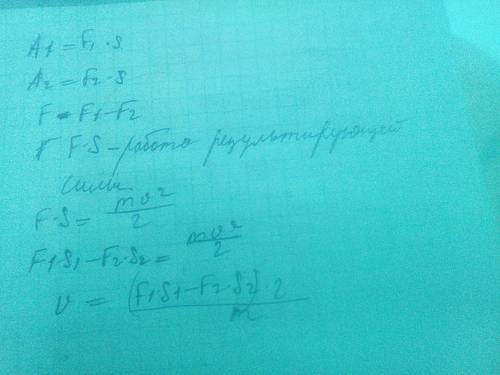 A1 = F1 · s
A2 = F2 · s
F = F1 - F2
F · S - работа результирующей
силы
F · S = mv²/2
F1 · S1 - F2 · S2 = mv²/2
v = (F1 · S1 - F2 · S2) · 2 / m